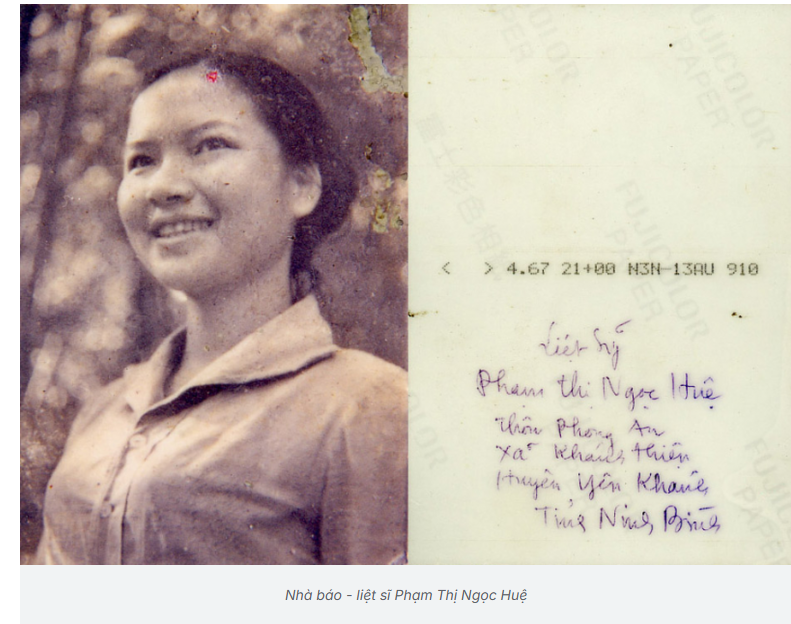 FUJICOLOR
PAPER
FUJICOLOR
PAPER
富士彩色相
FUJICOLOR
PAPER
< > 4.67 21+00 N3N-13AU 910
Liệt sỹ
Phạm thị Ngọc Huệ
thôn Phong An
xã Khánh thiện
Huyện yên Khánh
Tỉnh Ninh Bình
FUJICOLOR
PAPER
Nhà báo - liệt sĩ Phạm Thị Ngọc Huệ